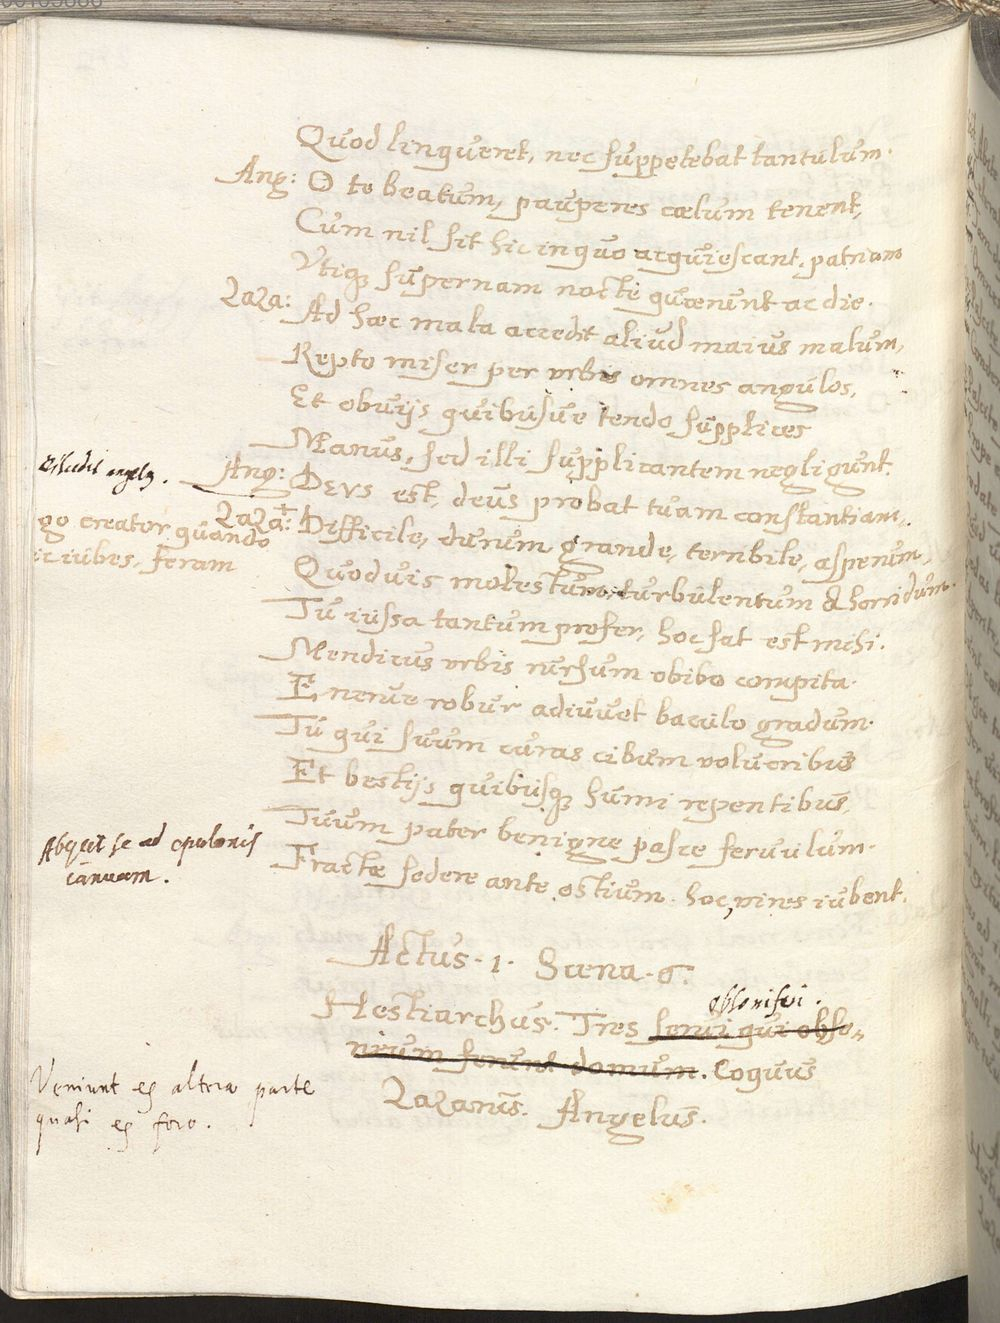 Quod linqueret, nec suppetebat tantulum.
Ang: O te beatum, pauperes cœlum tenent,
Cum nil sit hic in quo acquiescant, patriam
Vtiq supernam nocte quærunt ac die.
Laza: Ad hæc mala accedit aliud maius malum,
Repto miser per vrbis omnes angulos,
Et obvijs quibusve tendo supplices
Manus, sed illi supplicantem negligunt.
Ang: Devs est, deus probat tuam constantiam,
Discedit angelq.
Laza: Difficile, durum grande, terribile, asperum,
go creator quando
iubes, feram
Quoduis molestum, turbulentum & horridum.
Tu iussa tantum profer, hoc sat est mihi.
Mendicus vrbis rursum obibo compita.
Enerue robur adiuuet baculo gradum.
Tu qui suum curas cibum volucribus
Et bestijs quibusq humi repentibus,
Tuum pater benigne pasce seruulum.
Abijcit se ad epulonis
ianuam.
Fractæ sedere ante ostium hoc, vires iubent.
Actus. 1. Scena. 6.
obsoniferi.
Hestiarchus. Tres serui qui obso-
nium ferunt domum. Coquus
Veniunt ex altera parte
quasi ex foro.
Lazarus. Angelus.